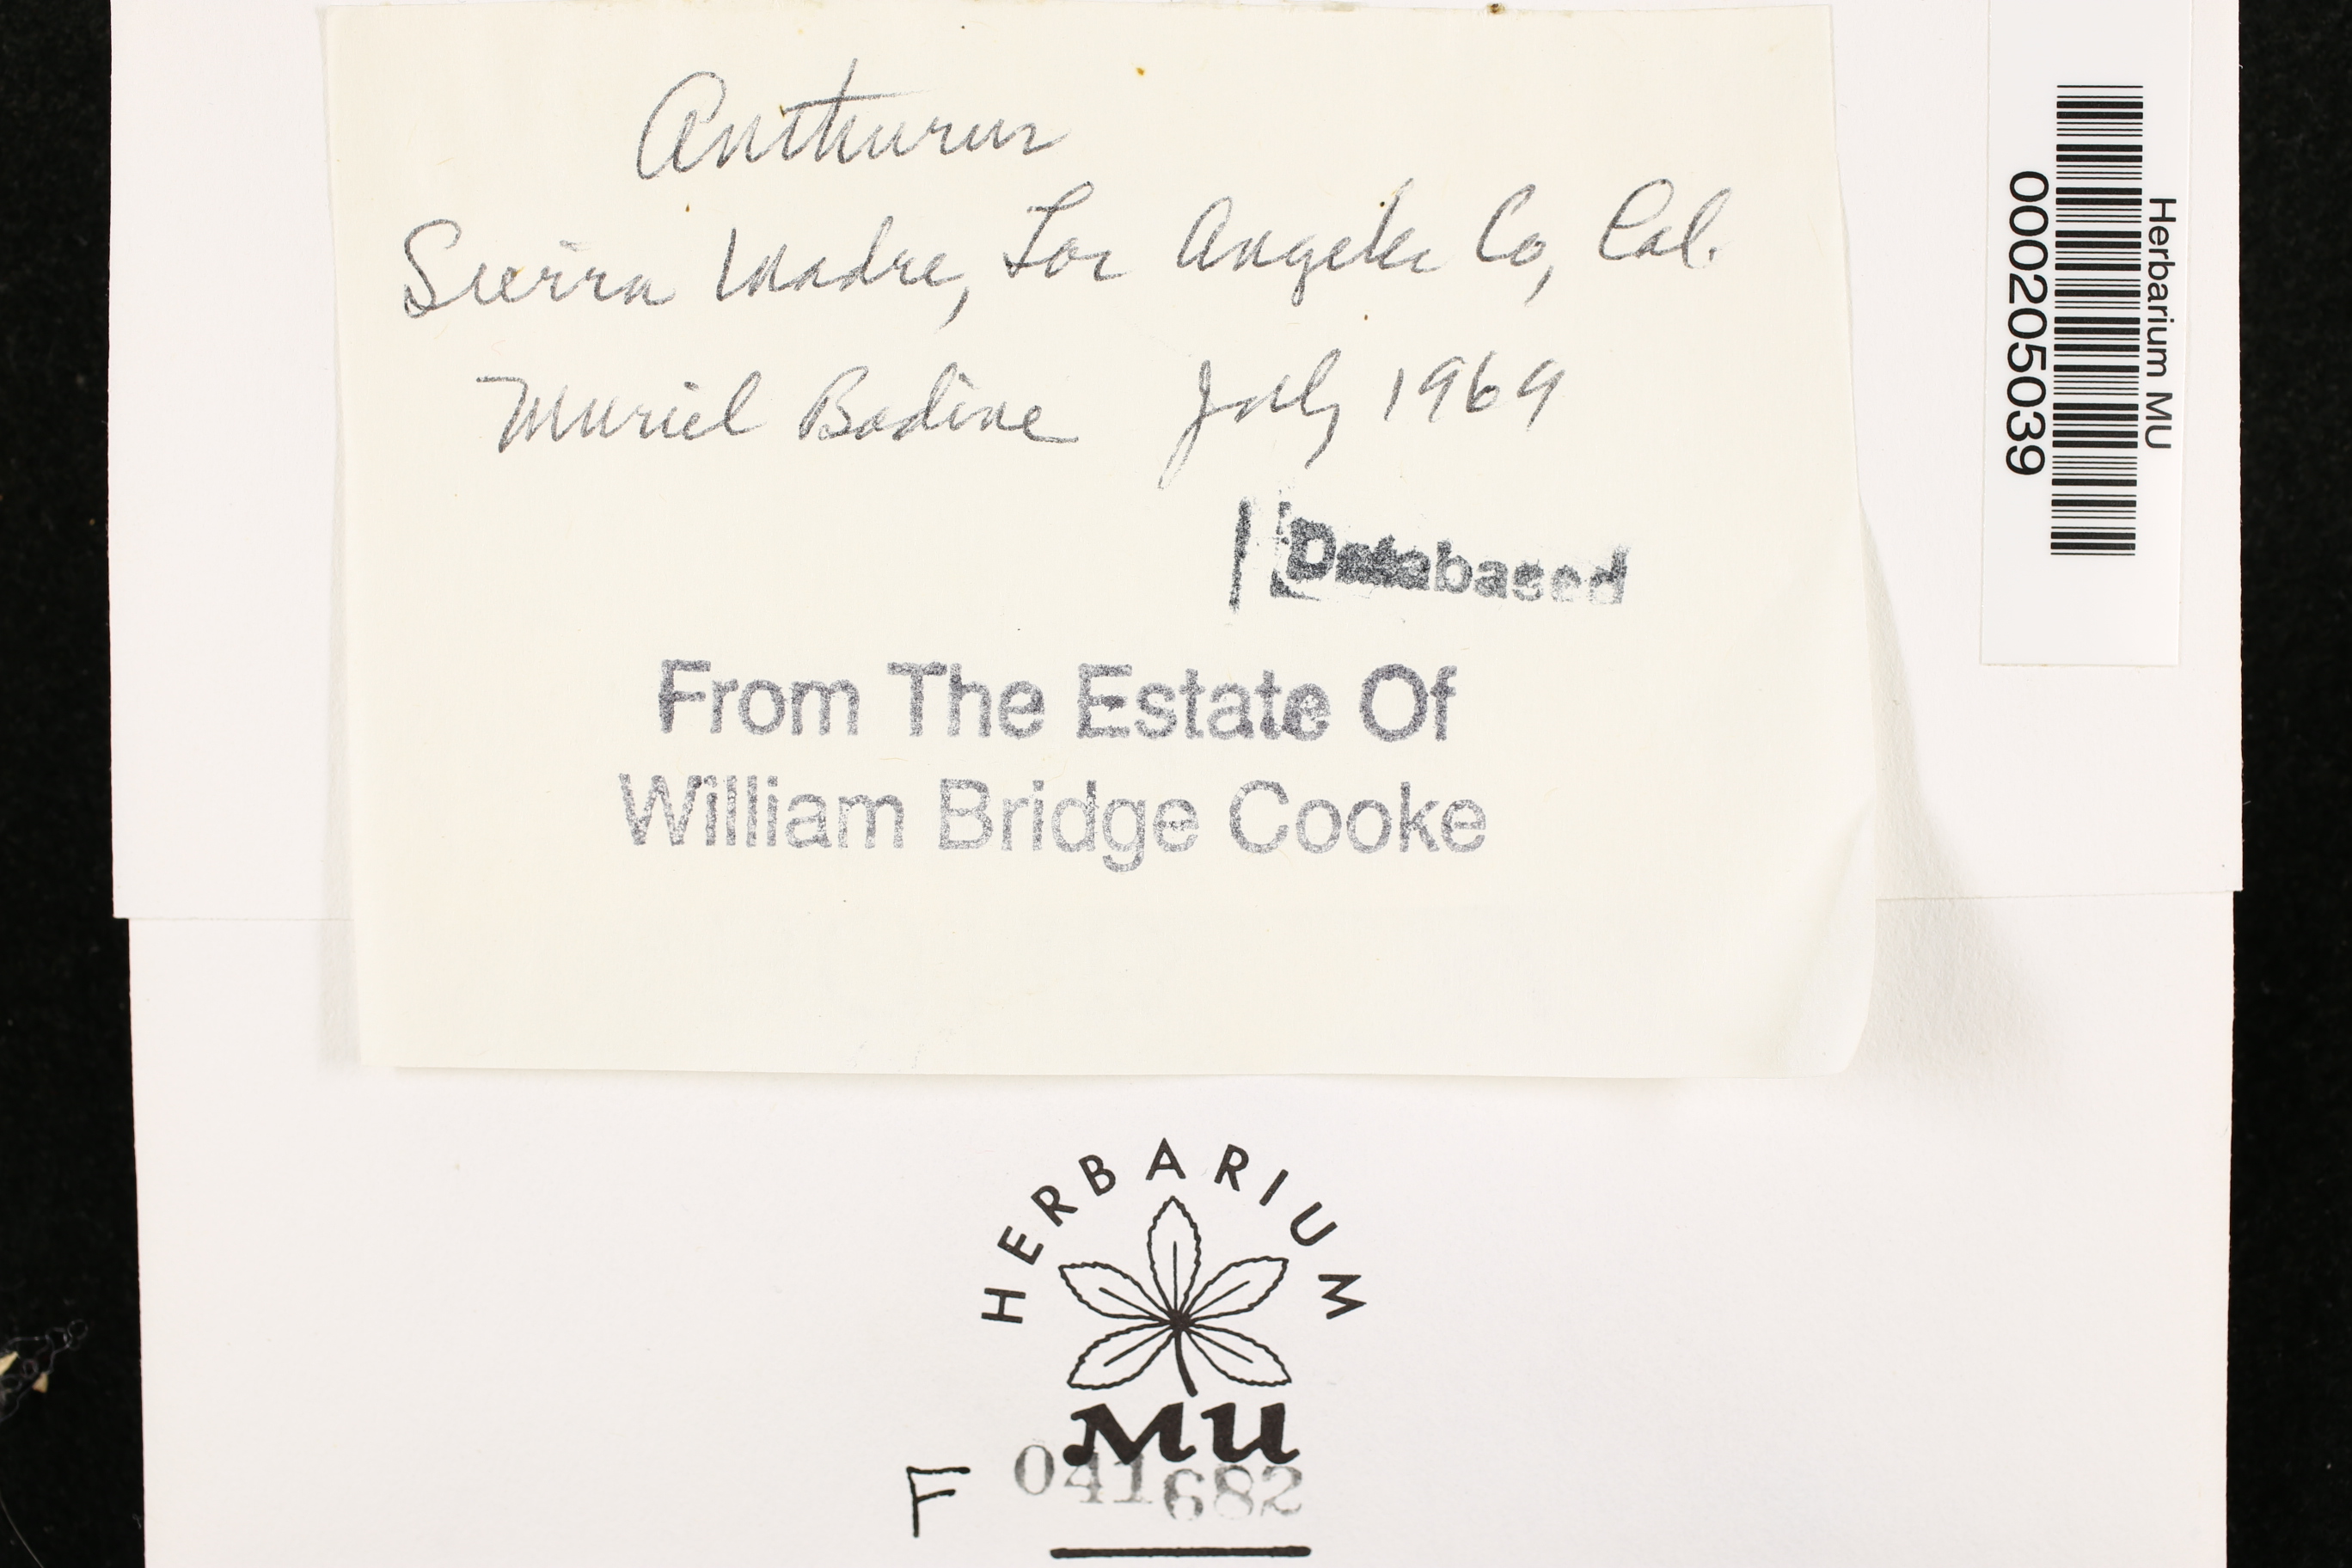 Anthurus
Sierra Madre, Los Angeles Co, Cal.
Muriel Bodine July 1969
Databased
From The Estate Of
William Bridge Cooke
Herbarium MU
000205039
HERBARIUM
MU
F 041682